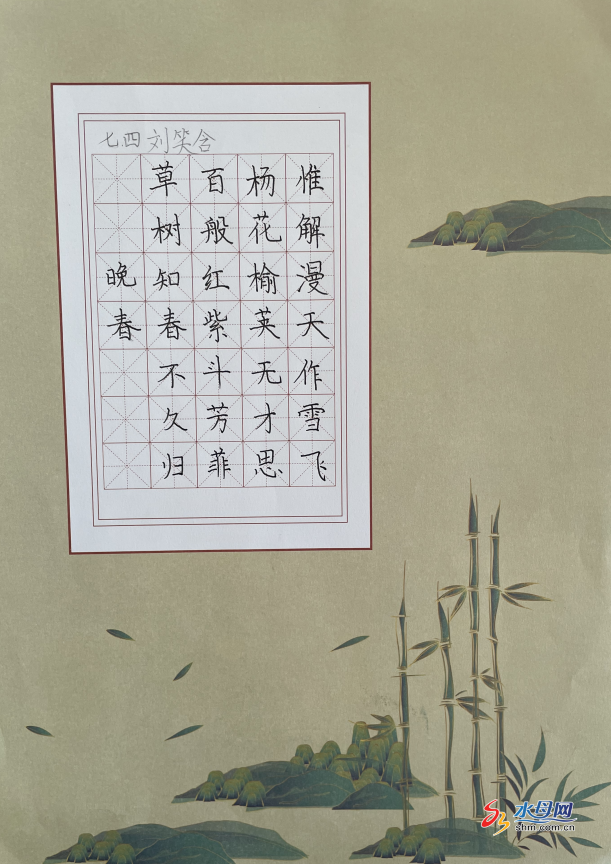 七.四 刘笑含
晚春
草树知春不久归
百般红紫斗芳菲
杨花榆荚无才思
惟解漫天作雪飞
水母网
shm.com.cn